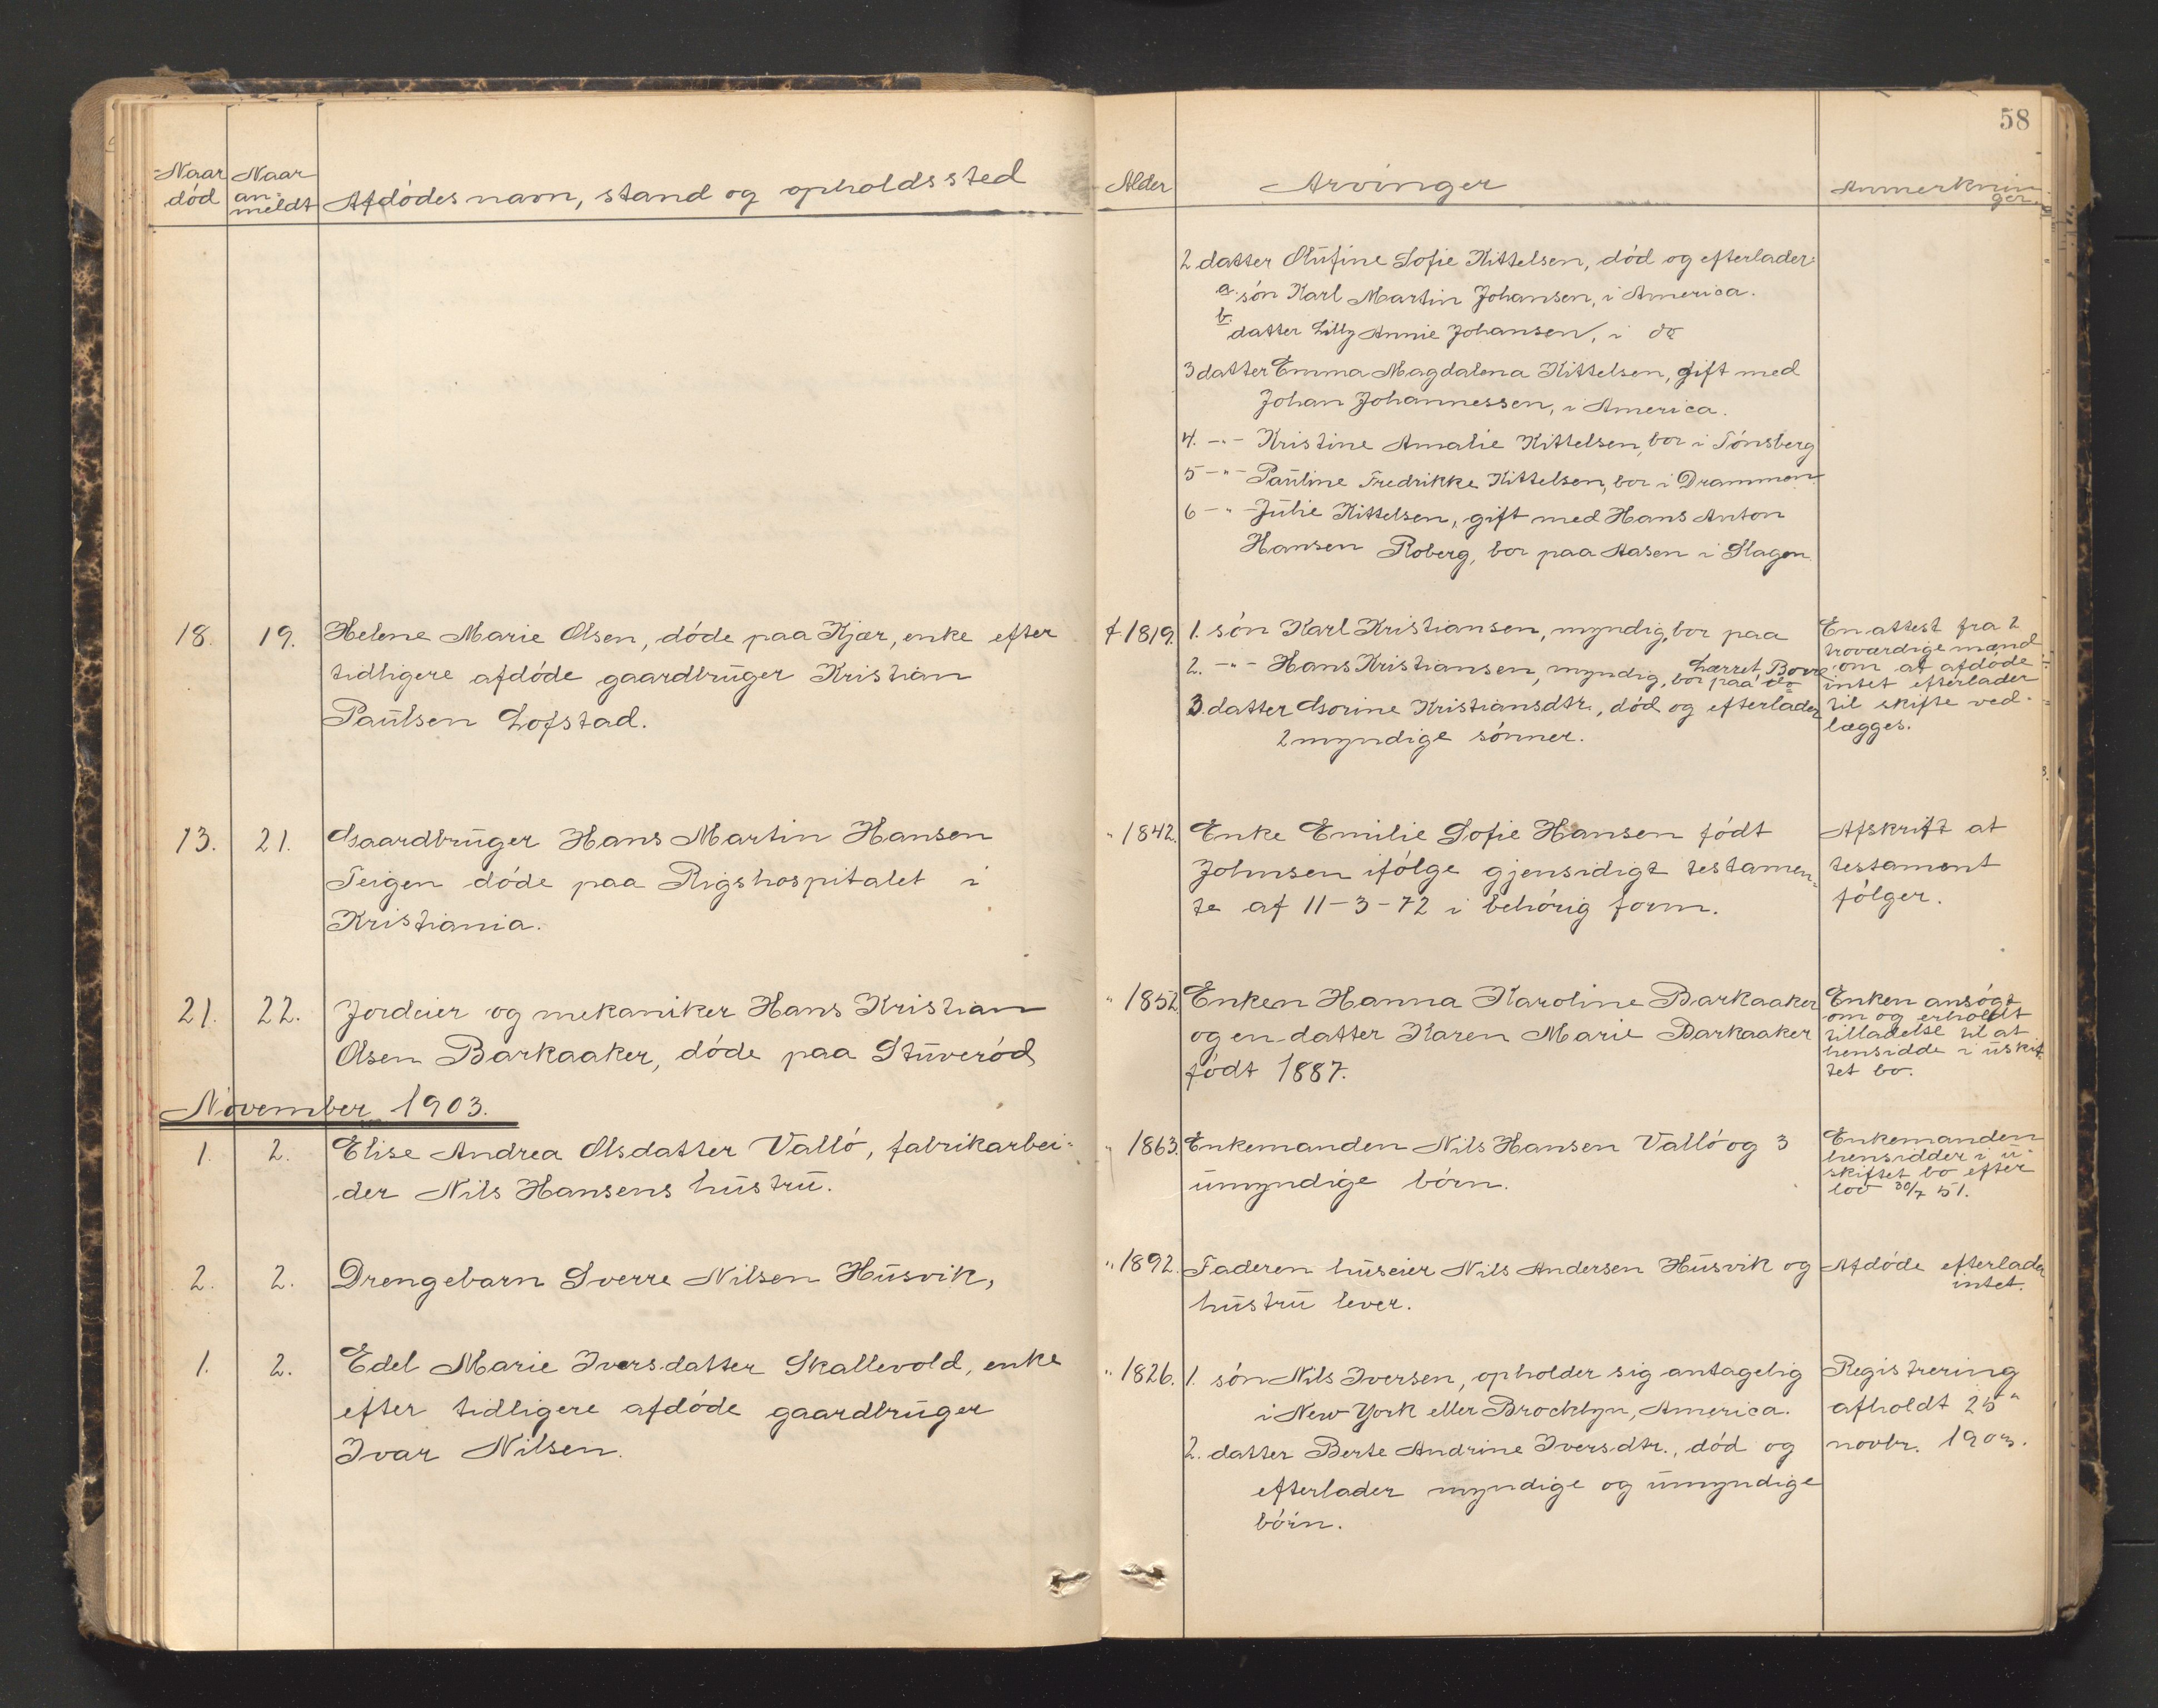 58
Naar død
Naar an-meldt
Afdødes navn, stand og opholdssted
Alder
Arvinger
Anmerkninger
2 datter Olufine Sofie Kittelsen, død og efterlader:
a. søn Karl Martin Johansen, i America.
b. datter Lilly Annie Johansen, i do
3 datter Emma Magdalena Kittelsen, gift med
Johan Johannessen, i America.
4. -"- Kristine Amalie Kittelsen, bor i Tønsberg
5 -"- Pauline Fredrikke Kittelsen, bor i Drammen
6 -"- Julie Kittelsen, gift med Hans Anton
Hansen Roberg, bor paa Aasen i Slagen.
18. 19. Helene Marie Olsen, døde paa Kjær, enke efter
tidligere afdøde gaardbruger Kristian
Paulsen Lofstad.
f. 1819.
1. søn Karl Kristiansen, myndig, bor paa
2. -"- Hans Kristiansen, myndig, bor paa do Borre
3. datter Gorine Kristiansdtr., død og efterlader
2 myndige sønner.
En attest fra 2
troværdige mænd
om at afdøde
intet efterlader
til skifte ved-
lægges.
13. 21. Gaardbruger Hans Martin Hansen
Teigen døde paa Rigshospitalet i
Kristiania.
" 1842.
Enke Emilie Sofie Hansen født
Johnsen ifølge gjensidigt testamen-
te af 11-3-72 i behørig form.
Afskrift at
testament
følger.
21. 22. Jordeier og mekaniker Hans Kristian
Olsen Barkaaker, døde paa Stuverød
" 1852
Enken Hanna Karoline Barkaaker
og en datter Karen Marie Barkaaker
født 1887.
Enken ansøgt
om og erholdt
tilladelse til at
hensidde i uskif-
tet bo.
November 1903.
1. 2. Elise Andrea Olsdatter Valló, fabrikarbei-
der Nils Hansens hustru.
" 1863.
Enkemanden Nils Hansen Valló og 3
umyndige børn.
Enkemanden
hensidder i u-
skiftet bo efter
lov 30/7 51.
2. 2. Drengebarn Sverre Nilsen Husvik,
" 1892.
Faderen huseier Nils Andersen Husvik og
hustru lever.
Afdøde efterlader
intet.
1. 2. Edel Marie Iversdatter Skallevold, enke
efter tidligere afdøde gaardbruger
Ivar Nilsen.
" 1826.
1. søn Nils Iversen, opholder sig antagelig
i New York eller Brocklyn, America.
2. datter Berte Andrine Iversdtr., død og
efterlader myndige og umyndige
børn.
Registrering
afholdt 25"
novbr. 1903.